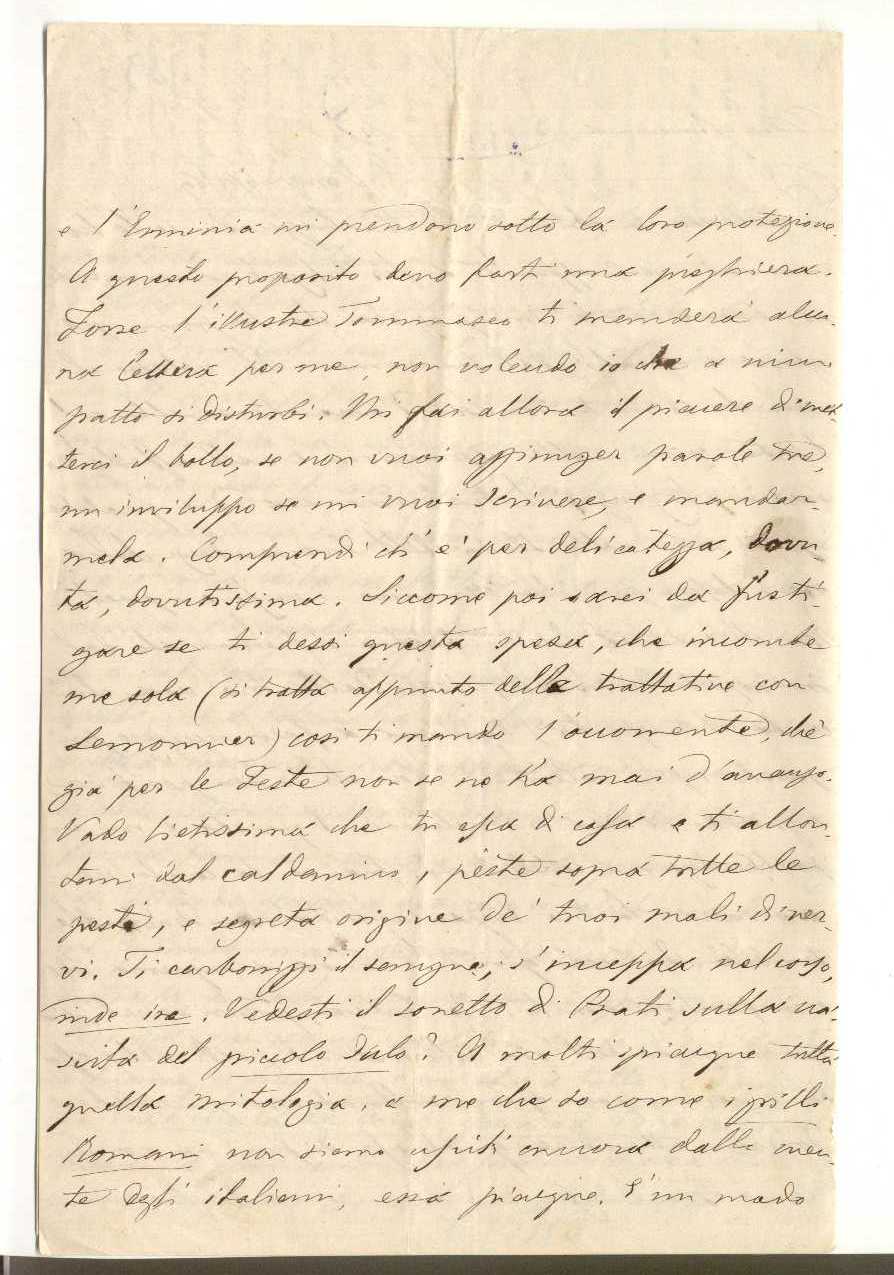 e l'Erminia mi prendono sotto la loro protezione.
A questo proposito devo farti una preghiera.
Forse l'illustre Tommaseo ti manderà alcu-
na lettera per me, non volendo io che a niun
patto si disturbi. Mi fai allora il piacere di met-
terci il bollo, se non vuoi aggiunger parole tue,
un inviluppo se mi vuoi scrivere, e mandar-
mela. Comprendi ch'è per delicatezza, dovu-
ta, dovutissima. Siccome poi sarei da fusti-
gare se ti dessi questa spesa, che incombe
me sola (si tratta appunto delle trattative con
Lemonnier) così ti mando l'occorrente, chè
già per le Feste non se ne ha mai d'avanzo.
Vado lietissima che tu esca di casa e ti allon-
tani dal caldanino, peste sopra tutte le
pesti, e segreta origine de' tuoi mali di ner-
vi. Ti carbonizzi il sangue, s'inceppa nel corso,
inde ire. Vedesti il sonetto di Prati sulla na-
scita del piccolo Iulo? A molti spiacque tutta
quella mitologia, a me che so come i grilli
Romani non siano usciti ancora dalla men-
te degli italiani, essa piacque. È un modo